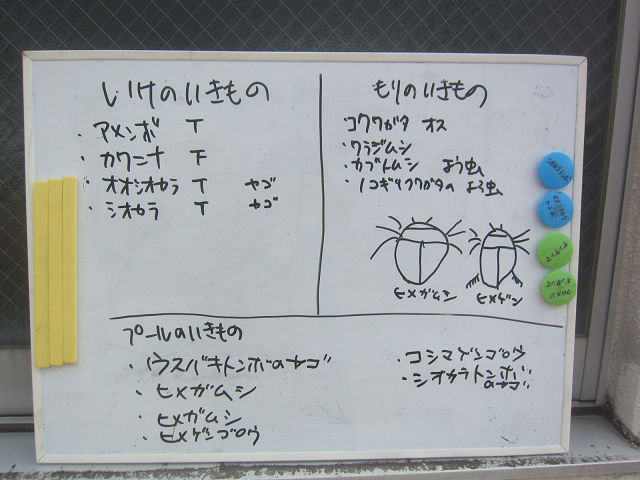 いけのいきもの
・アメンボ T
・カワニナ 下
・オオシオカラ T ヤゴ
・シオカラ T ヤゴ
もりのいきもの
コクワガタ オス
・ワラジムシ
・カブトムシ よう虫
・ノコギリクワガタの よう虫
ヒメガムシ
ヒメゲン
プールのいきもの
・ウスバキトンボのヤゴ
・ヒメガムシ
・ヒメガムシ
・ヒメゲンゴロウ
・コシマゲンゴロウ
・シオカラトンボ
のヤゴ